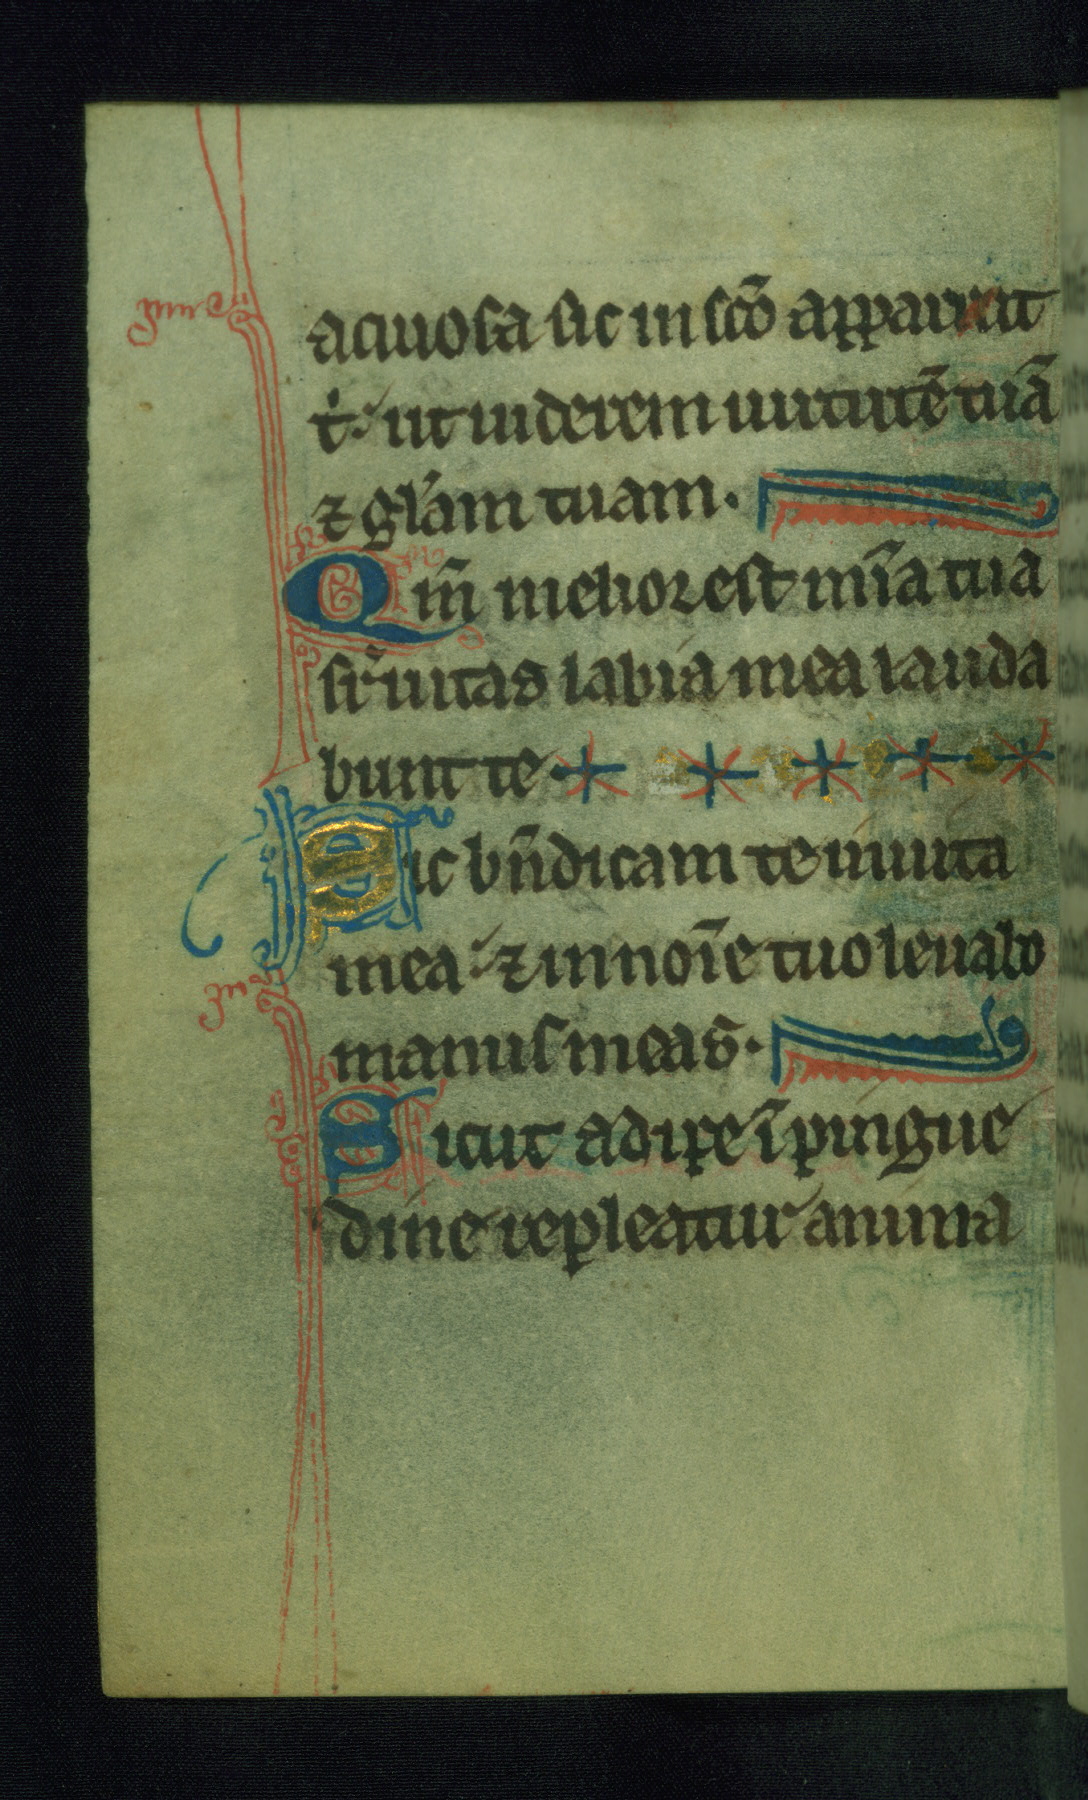 aquosa sic in scõ apparui
t̾. ut uiderem uirtutẽ tuã
⁊ gl̃am tuam.
Qm̃ melior est mĩa tua
sr̃ uitas labia mea lauda
bunt te.
Sic bñdicam te in uita
mea ⁊ in noĩe tuo leuabo
manus meas.
Sicut adipe ĩ pingue
dine repleatur anima